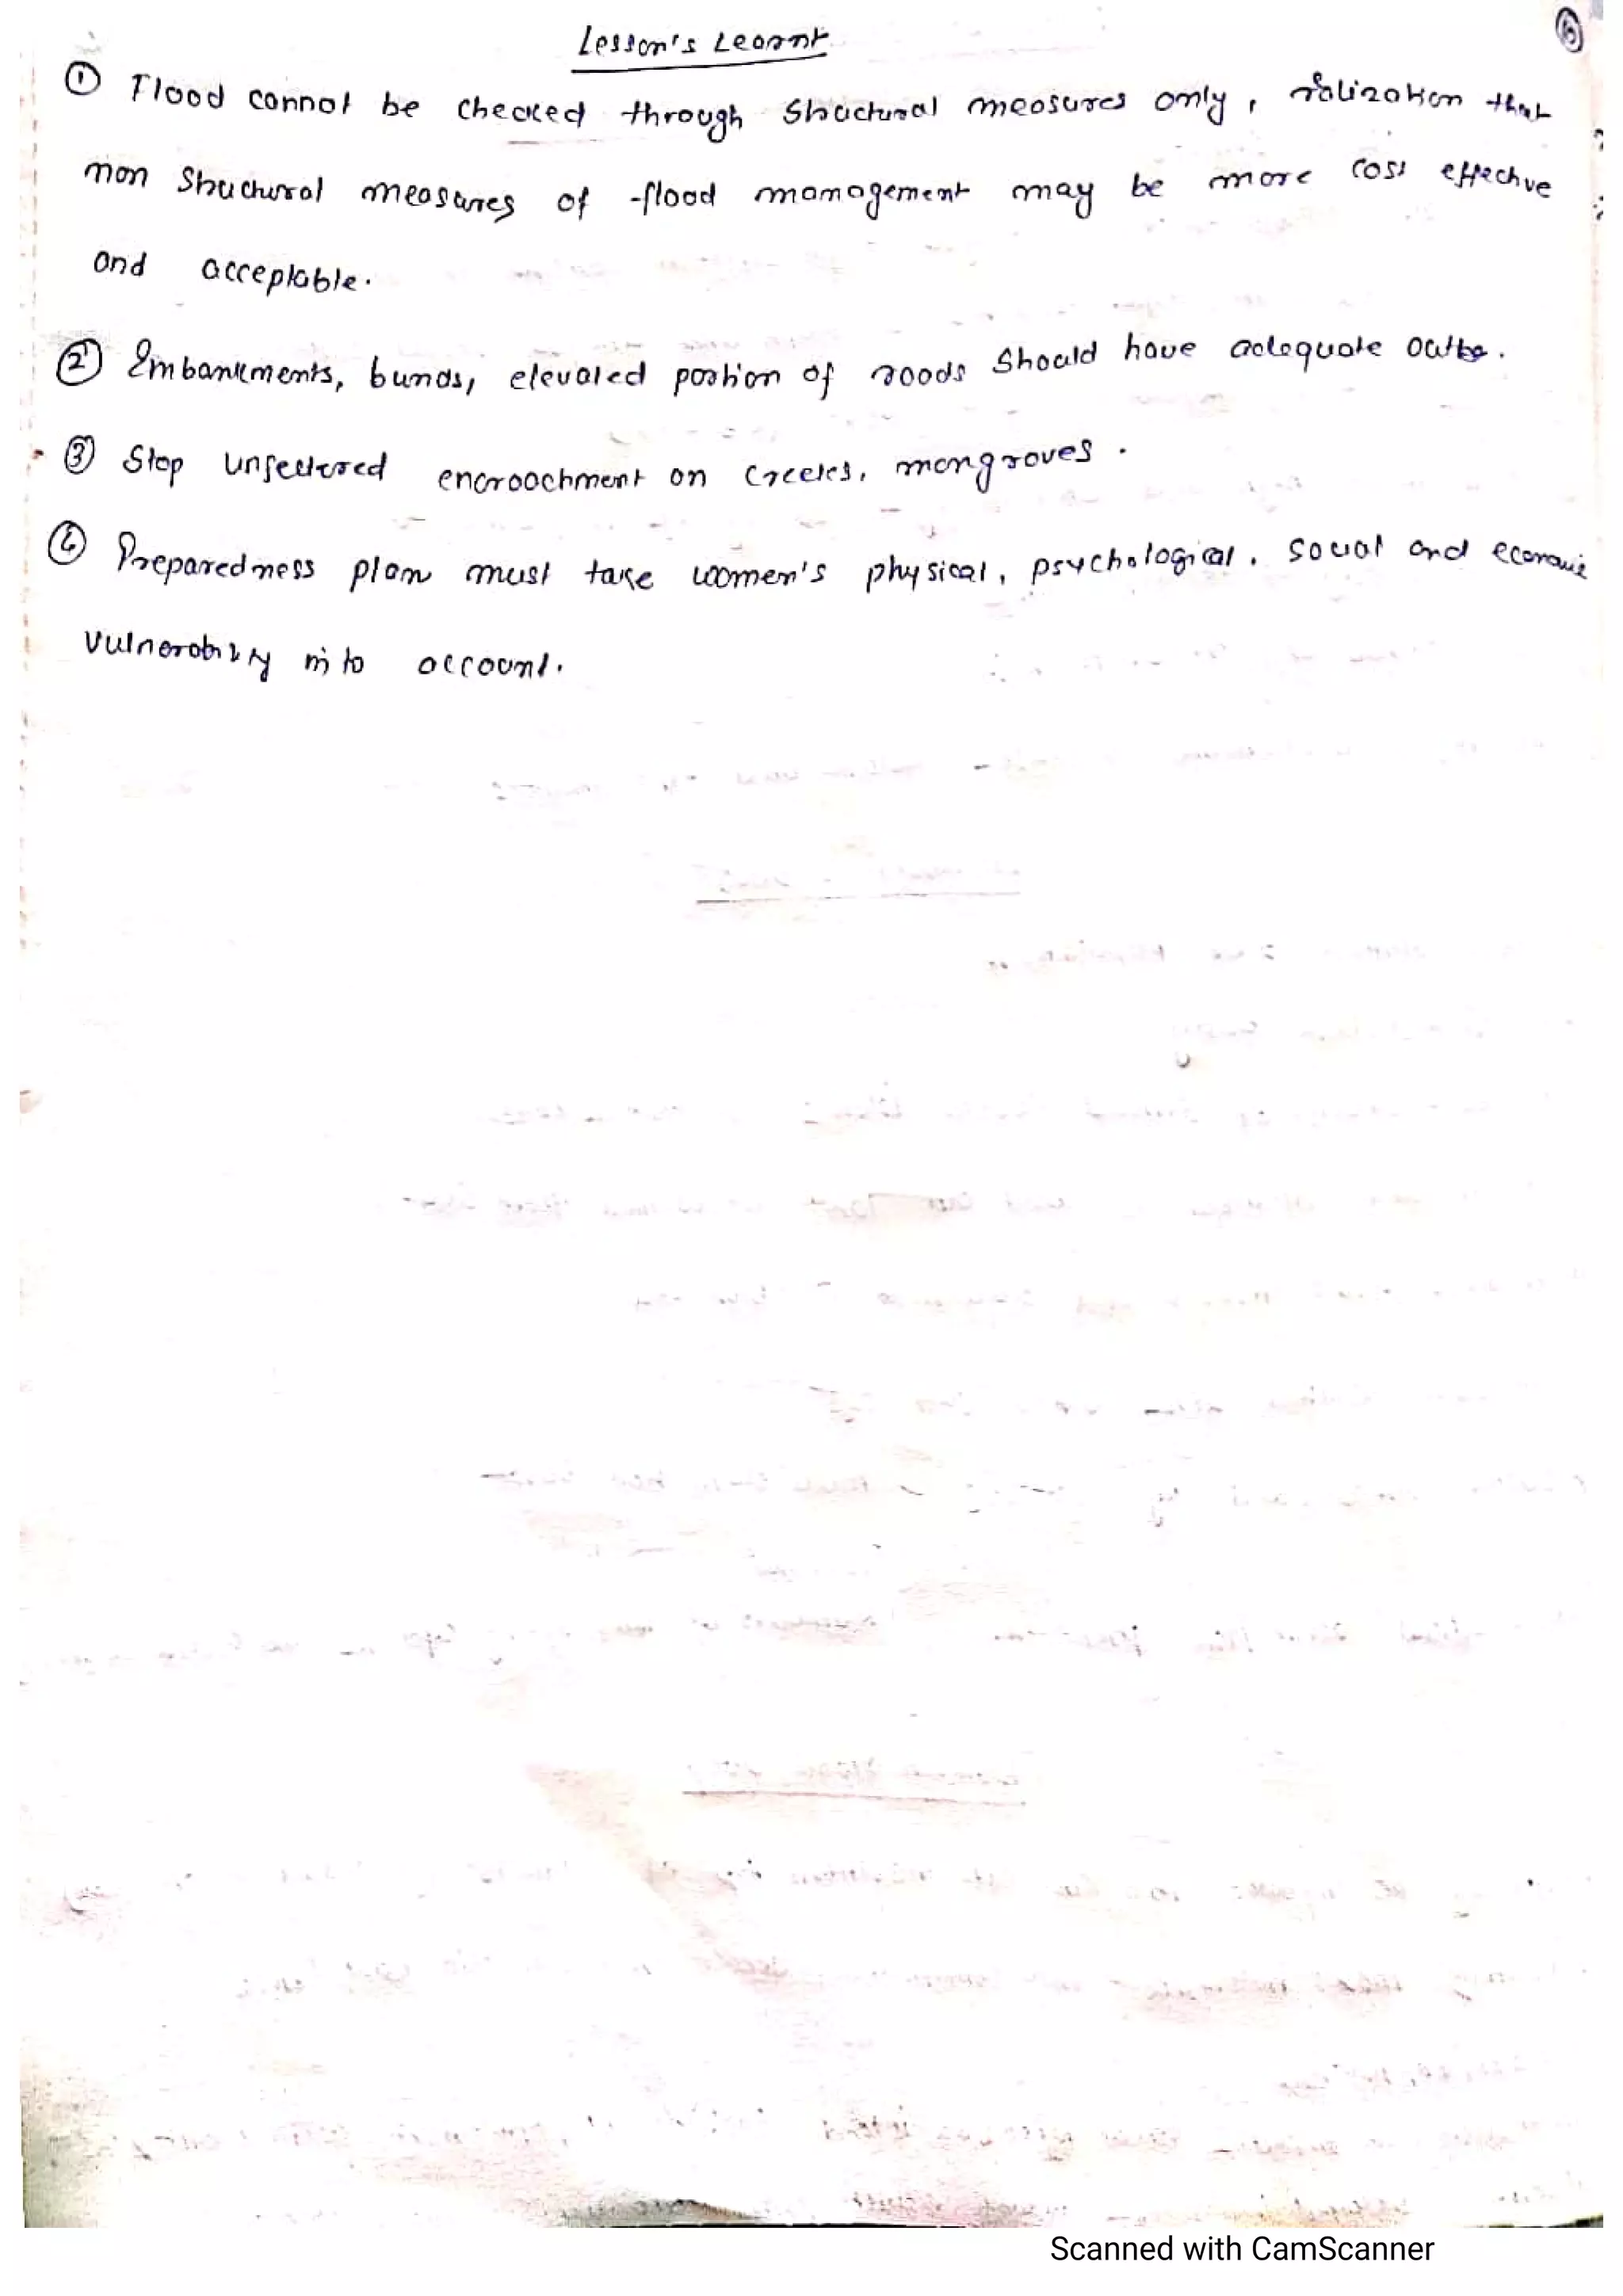 Lesson's Learnt
6
① Flood cannot be checked through Structural measures only, ralization that
non Structural measures of flood management may be more cost effective
and acceptable.
② Embankments, bunds, elevated portion of roads Should have adequate
③ Stop unfettered encroachment on creeks, mangroves.
Preparedness plan must take women's physical, psychological, social and economic
vulnerability into account.
Scanned with CamScanner